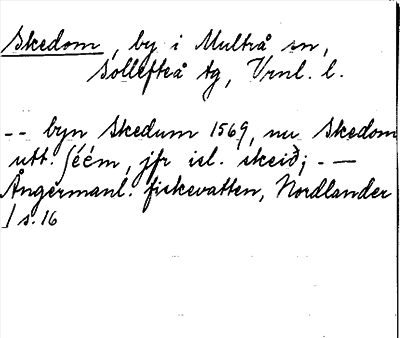 Skedom, by i Multrå sn,
Sollefteå tg, Vrnl. l.
-- byn Skedum 1569, nu Skedom
utt. ʃéém, jfr isl. skeið; - —
Ångermanl. fiskevatten, Nordlander
1 s. 16